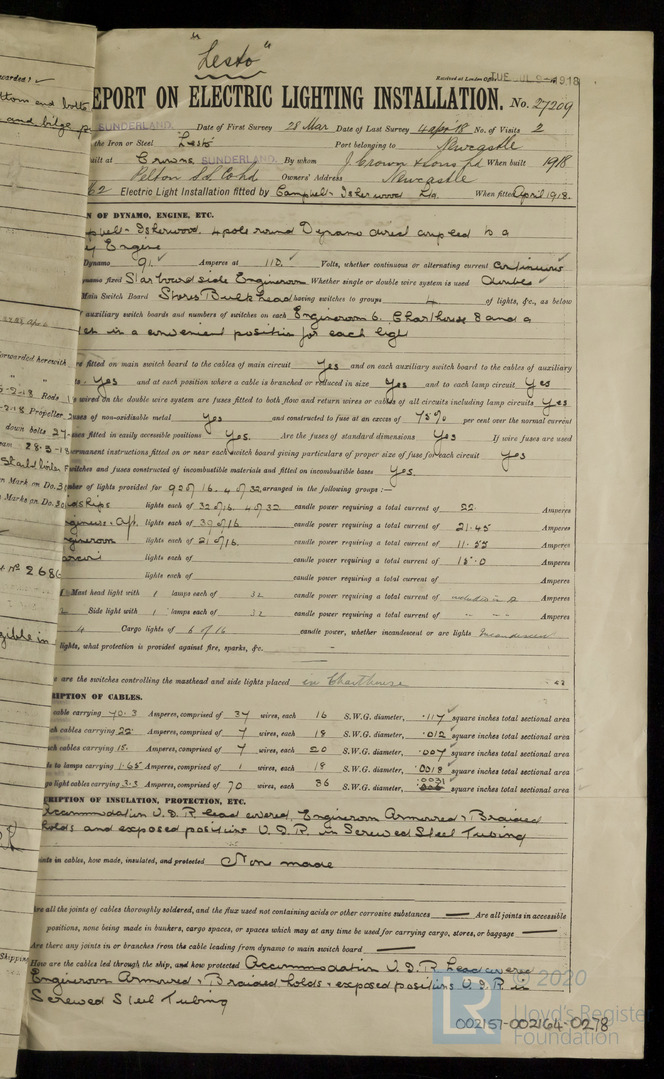 "Lesto"
Received at London Office TUE JUL 9 - 1918
EPORT ON ELECTRIC LIGHTING INSTALLATION. No. 27209
SUNDERLAND. Date of First Survey 28 Mar Date of Last Survey 4 apr 18 No. of Visits 2
the Iron or Steel Lesto Port belonging to Newcastle
uilt at Crowns SUNDERLAND. By whom J. Crown & Sons Ld When built 1918
Pelton S.S. Co Ltd Owners' Address Newcastle
62 Electric Light Installation fitted by Campbell & Isherwood Ltd. When fitted April 1918.
N OF DYNAMO, ENGINE, ETC.
pbell & Isherwood. 4 pole round Dynamo direct coupled to a
Engine
Dynamo 91 Amperes at 110 Volts, whether continuous or alternating current continuous
ynamo fixed Starboard side Engineroom Whether single or double wire system is used double
Main Switch Board Stores Bulkhead having switches to groups 4 of lights, &c., as below
auxiliary switch boards and numbers of switches on each Engineroom 6. Charthouse 8 and a
tch in a convenient position for each light
re fitted on main switch board to the cables of main circuit Yes and on each auxiliary switch board to the cables of auxiliary
ts Yes and at each position where a cable is branched or reduced in size Yes and to each lamp circuit Yes
wired on the double wire system are fuses fitted to both flow and return wires or cables of all circuits including lamp circuits Yes
uses of non-oxidizable metal Yes and constructed to fuse at an excess of 75% per cent over the normal current
uses fitted in easily accessible positions Yes. Are the fuses of standard dimensions Yes If wire fuses are used
ermanent instructions fitted on or near each switch board giving particulars of proper size of fuse for each circuit Yes
witches and fuses constructed of incombustible materials and fitted on incombustible bases Yes.
ber of lights provided for 92 of 16. 4 of 32 arranged in the following groups :—
lights each of 32 of 16. 4 of 32 candle power requiring a total current of 22 Amperes
lights each of 39 of 16 candle power requiring a total current of 21.45 Amperes
ngineroom lights each of 21 of 16. candle power requiring a total current of 11.55 Amperes
lights each of candle power requiring a total current of 15.0 Amperes
lights each of candle power requiring a total current of Amperes
Mast head light with 1 lamps each of 32 candle power requiring a total current of included in A Amperes
2 Side light with 1 lamps each of 32 candle power requiring a total current of " " Amperes
4 Cargo lights of 6 of 16 candle power, whether incandescent or arc lights Incandescent
lights, what protection is provided against fire, sparks, &c. —
e are the switches controlling the masthead and side lights placed in Charthouse
RIPTION OF CABLES.
cable carrying 70.3 Amperes, comprised of 37 wires, each 16 S.W.G. diameter, .117 square inches total sectional area
ch cables carrying 22 Amperes, comprised of 7 wires, each 18 S.W.G. diameter, .012 square inches total sectional area
ch cables carrying 15. Amperes, comprised of 7 wires, each 20 S.W.G. diameter, .007 square inches total sectional area
le to lamps carrying 1.65 Amperes, comprised of 1 wires, each 18 S.W.G. diameter, .0018 square inches total sectional area
go light cables carrying 3.3 Amperes, comprised of 70 wires, each 36 S.W.G. diameter, .0031 square inches total sectional area
CRIPTION OF INSULATION, PROTECTION, ETC.
Accommodation V.I.R. lead covered, Engineroom Armoured & Braided
Holds and exposed positions V.I.R. in Screwed Steel Tubing
ints in cables, how made, insulated, and protected Non made
Are all the joints of cables thoroughly soldered, and the flux used not containing acids or other corrosive substances — Are all joints in accessible
positions, none being made in bunkers, cargo spaces, or spaces which may at any time be used for carrying cargo, stores, or baggage —
Are there any joints in or branches from the cable leading from dynamo to main switch board —
How are the cables led through the ship, and how protected Accommodation V.I.R. lead covered
Engineroom Armoured & Braided holds & exposed positions V.I.R. in
Screwed Steel Tubing
LR 2020
Lloyd's Register
Foundation
002157-002164-0278